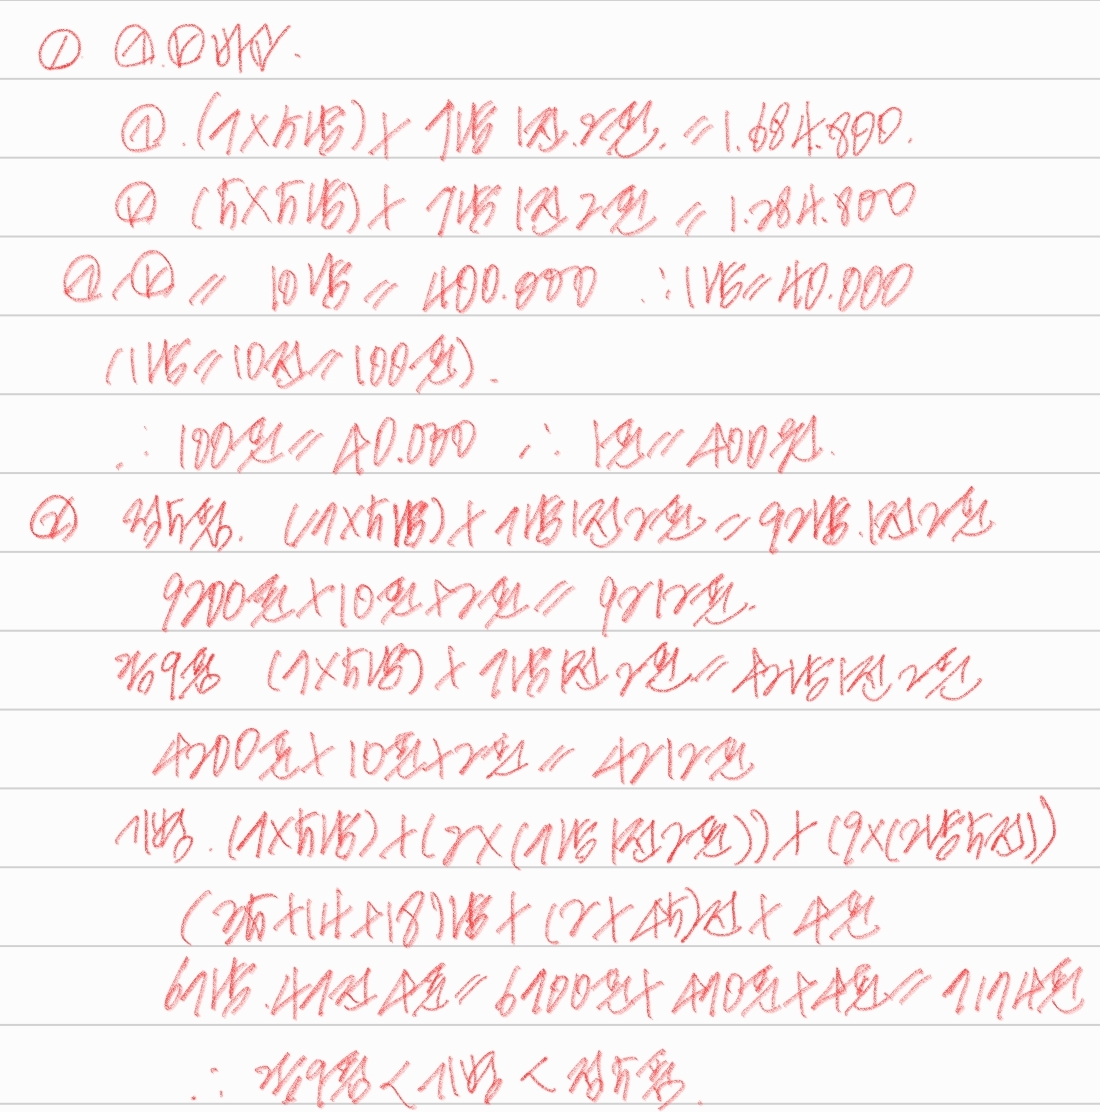 ① ㉠.㉡
㉠. (7×5냥)+7냥 1전.2푼. = 1.684.800.
㉡ (5×5냥)+7냥 1전 2푼 = 1.284.800
㉠-㉡ = 10냥 = 400.000 ∴1냥=40.000
(1냥=10전=100푼).
∴ 100푼=40.000 ∴ 1푼=400원.
② 정5품. (17×5냥)+7냥1전2푼=92냥.1전2푼
9200푼+10푼+2푼=9212푼.
종9품 (7×5냥)+7냥1전2푼=42냥1전2푼
4200푼+10푼+2푼=4212푼
기병. (7×5냥)+(2×(7냥 1전2푼))+(9×(2냥5전))
(35+14+18)냥+(2+45)전+4푼
67냥.47전4푼=6700푼+470푼+4푼=7174푼
∴ 종9품<기병<정5품.